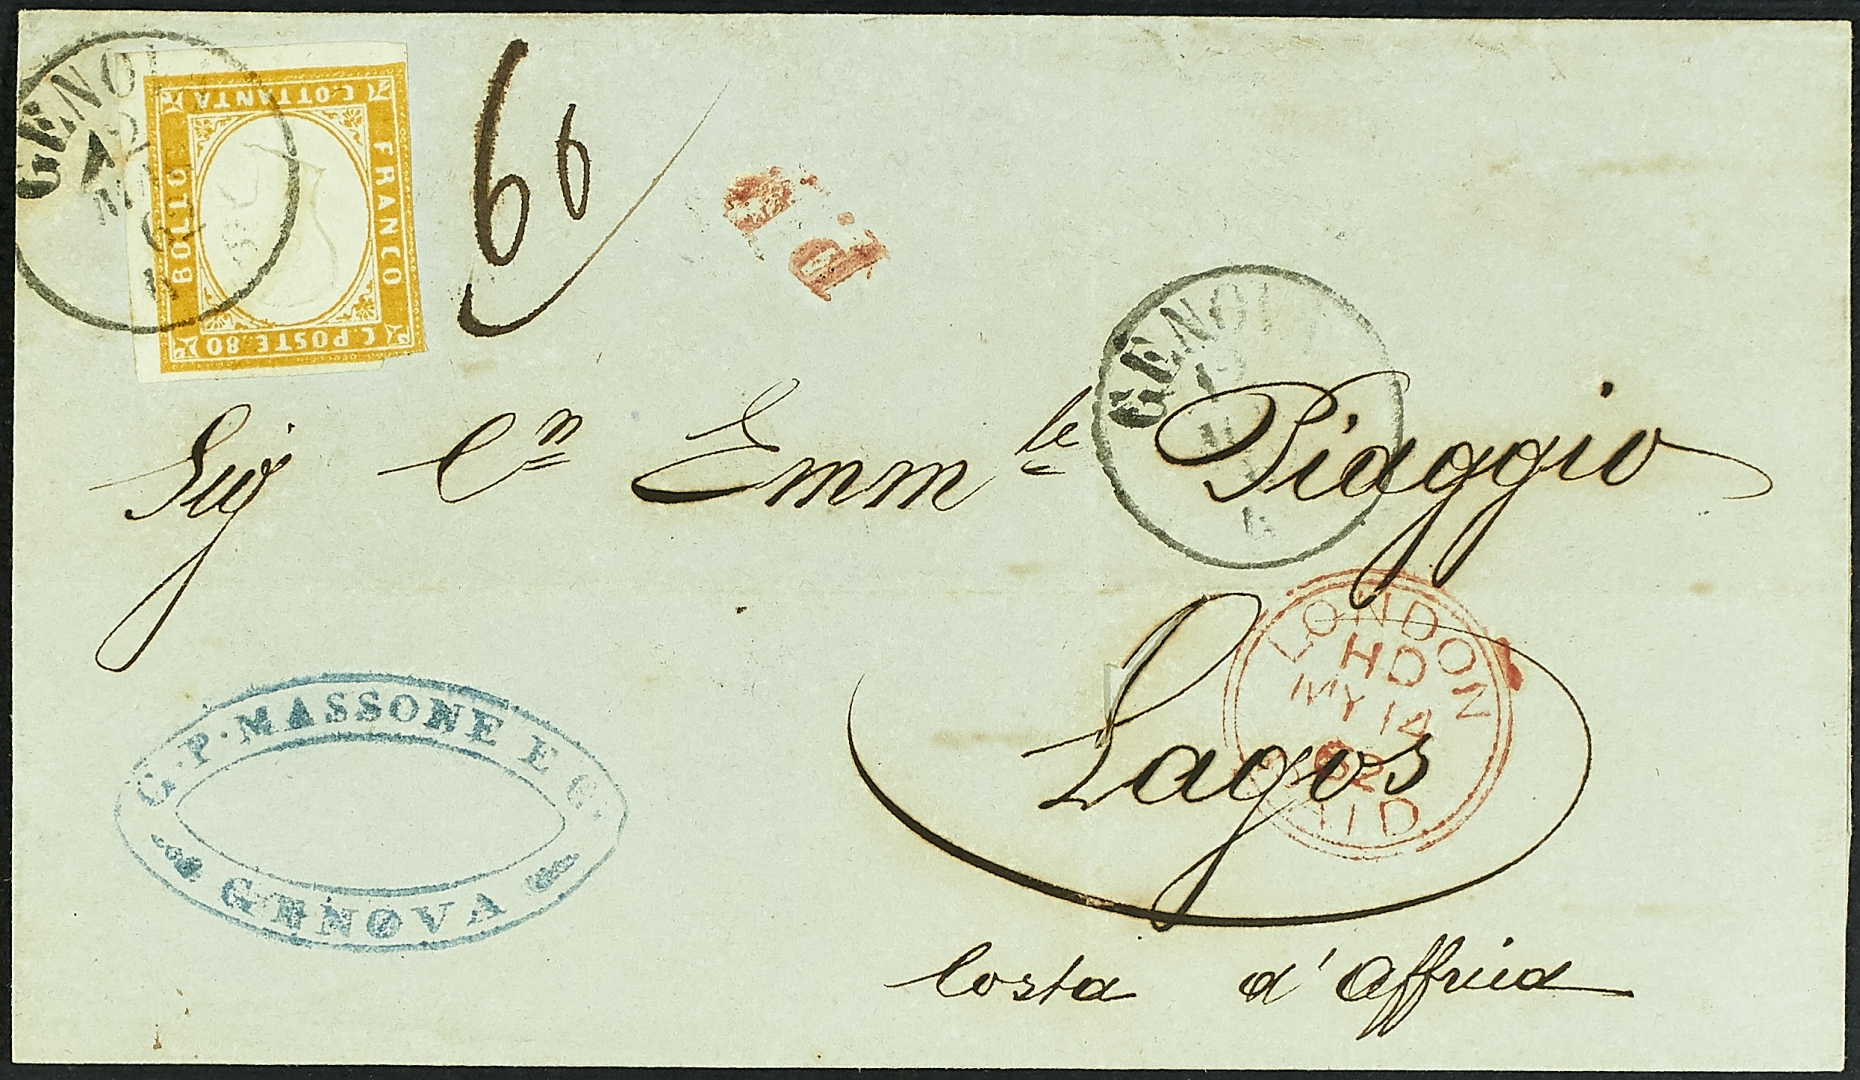 GENOVA
C. POSTE. 80
BOLLO
FRANCO
C. OTTANTA
66
P.D.
GENOVA
19
Sig Cn Emmle Piaggio
Lagos
Costa d'Affrica
LONDON
HD
MY 14
62
PAID
G. P. MASSONE E C.
GENOVA